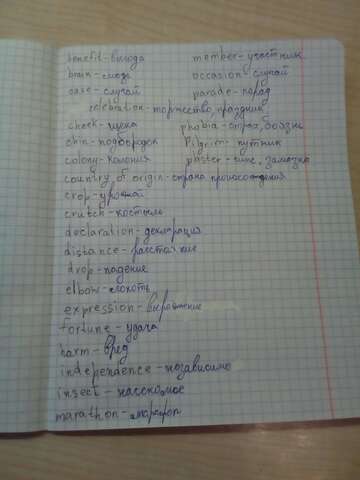 benefit - выгода member - участник
brain - occasion - случай
case - случай parade - парад
celebration - торжество, праздник
cheek - щека phobia - страх, боязнь
chin - подбородок Pilgrim - путник
colony - колония plaster - гипс, замазка
country of origin - страна происхождения
crop - урожай
crutch - костыль
declaration - декларация
distance - расстояние
drop - падение
elbow - локоть
expression - выражение
fortune - удача
harm - вред
independence - независимо
insect - насекомое
marathon - марафон